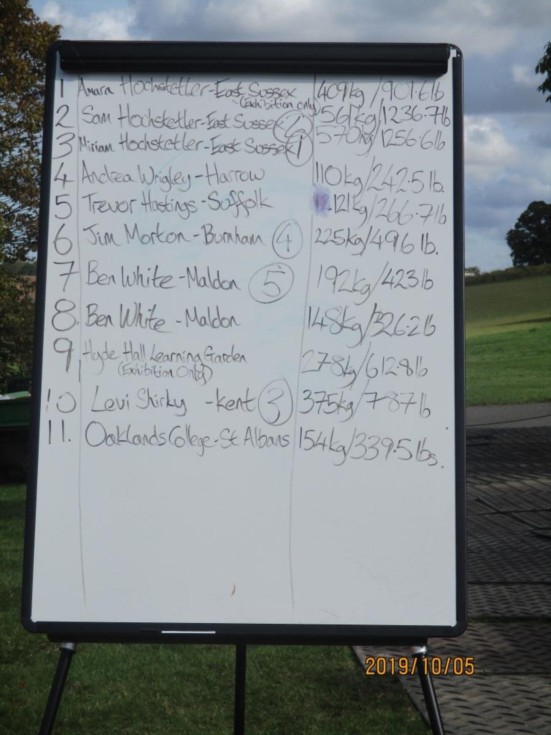 1 Amara Hochstetler-East Sussex 409kg/901.6lb
(Exhibition only)
2 Sam Hochstetler-East Sussex 2 561kg/1236.7lb
3 Miriam Hochstetler-East Sussex 1 570kg/1256.6lb
4 Andrea Wrigley-Harrow 110kg/242.5lb.
5 Trevor Hastings-Suffolk 121kg/266.7lb
6 Jim Morton-Burnham 4 225kg/496lb.
7 Ben White-Maldon 5 192kg/423lb
8. Ben White-Maldon 148kg/326.2lb
9 Hyde Hall Learning Garden 278kg/612.8lb
(Exhibition Only)
10 Levi Shirky -Kent 3 375kg/787lb
11. Oaklands College-St Albans 154kg/339.5lbs.
2019/10/05